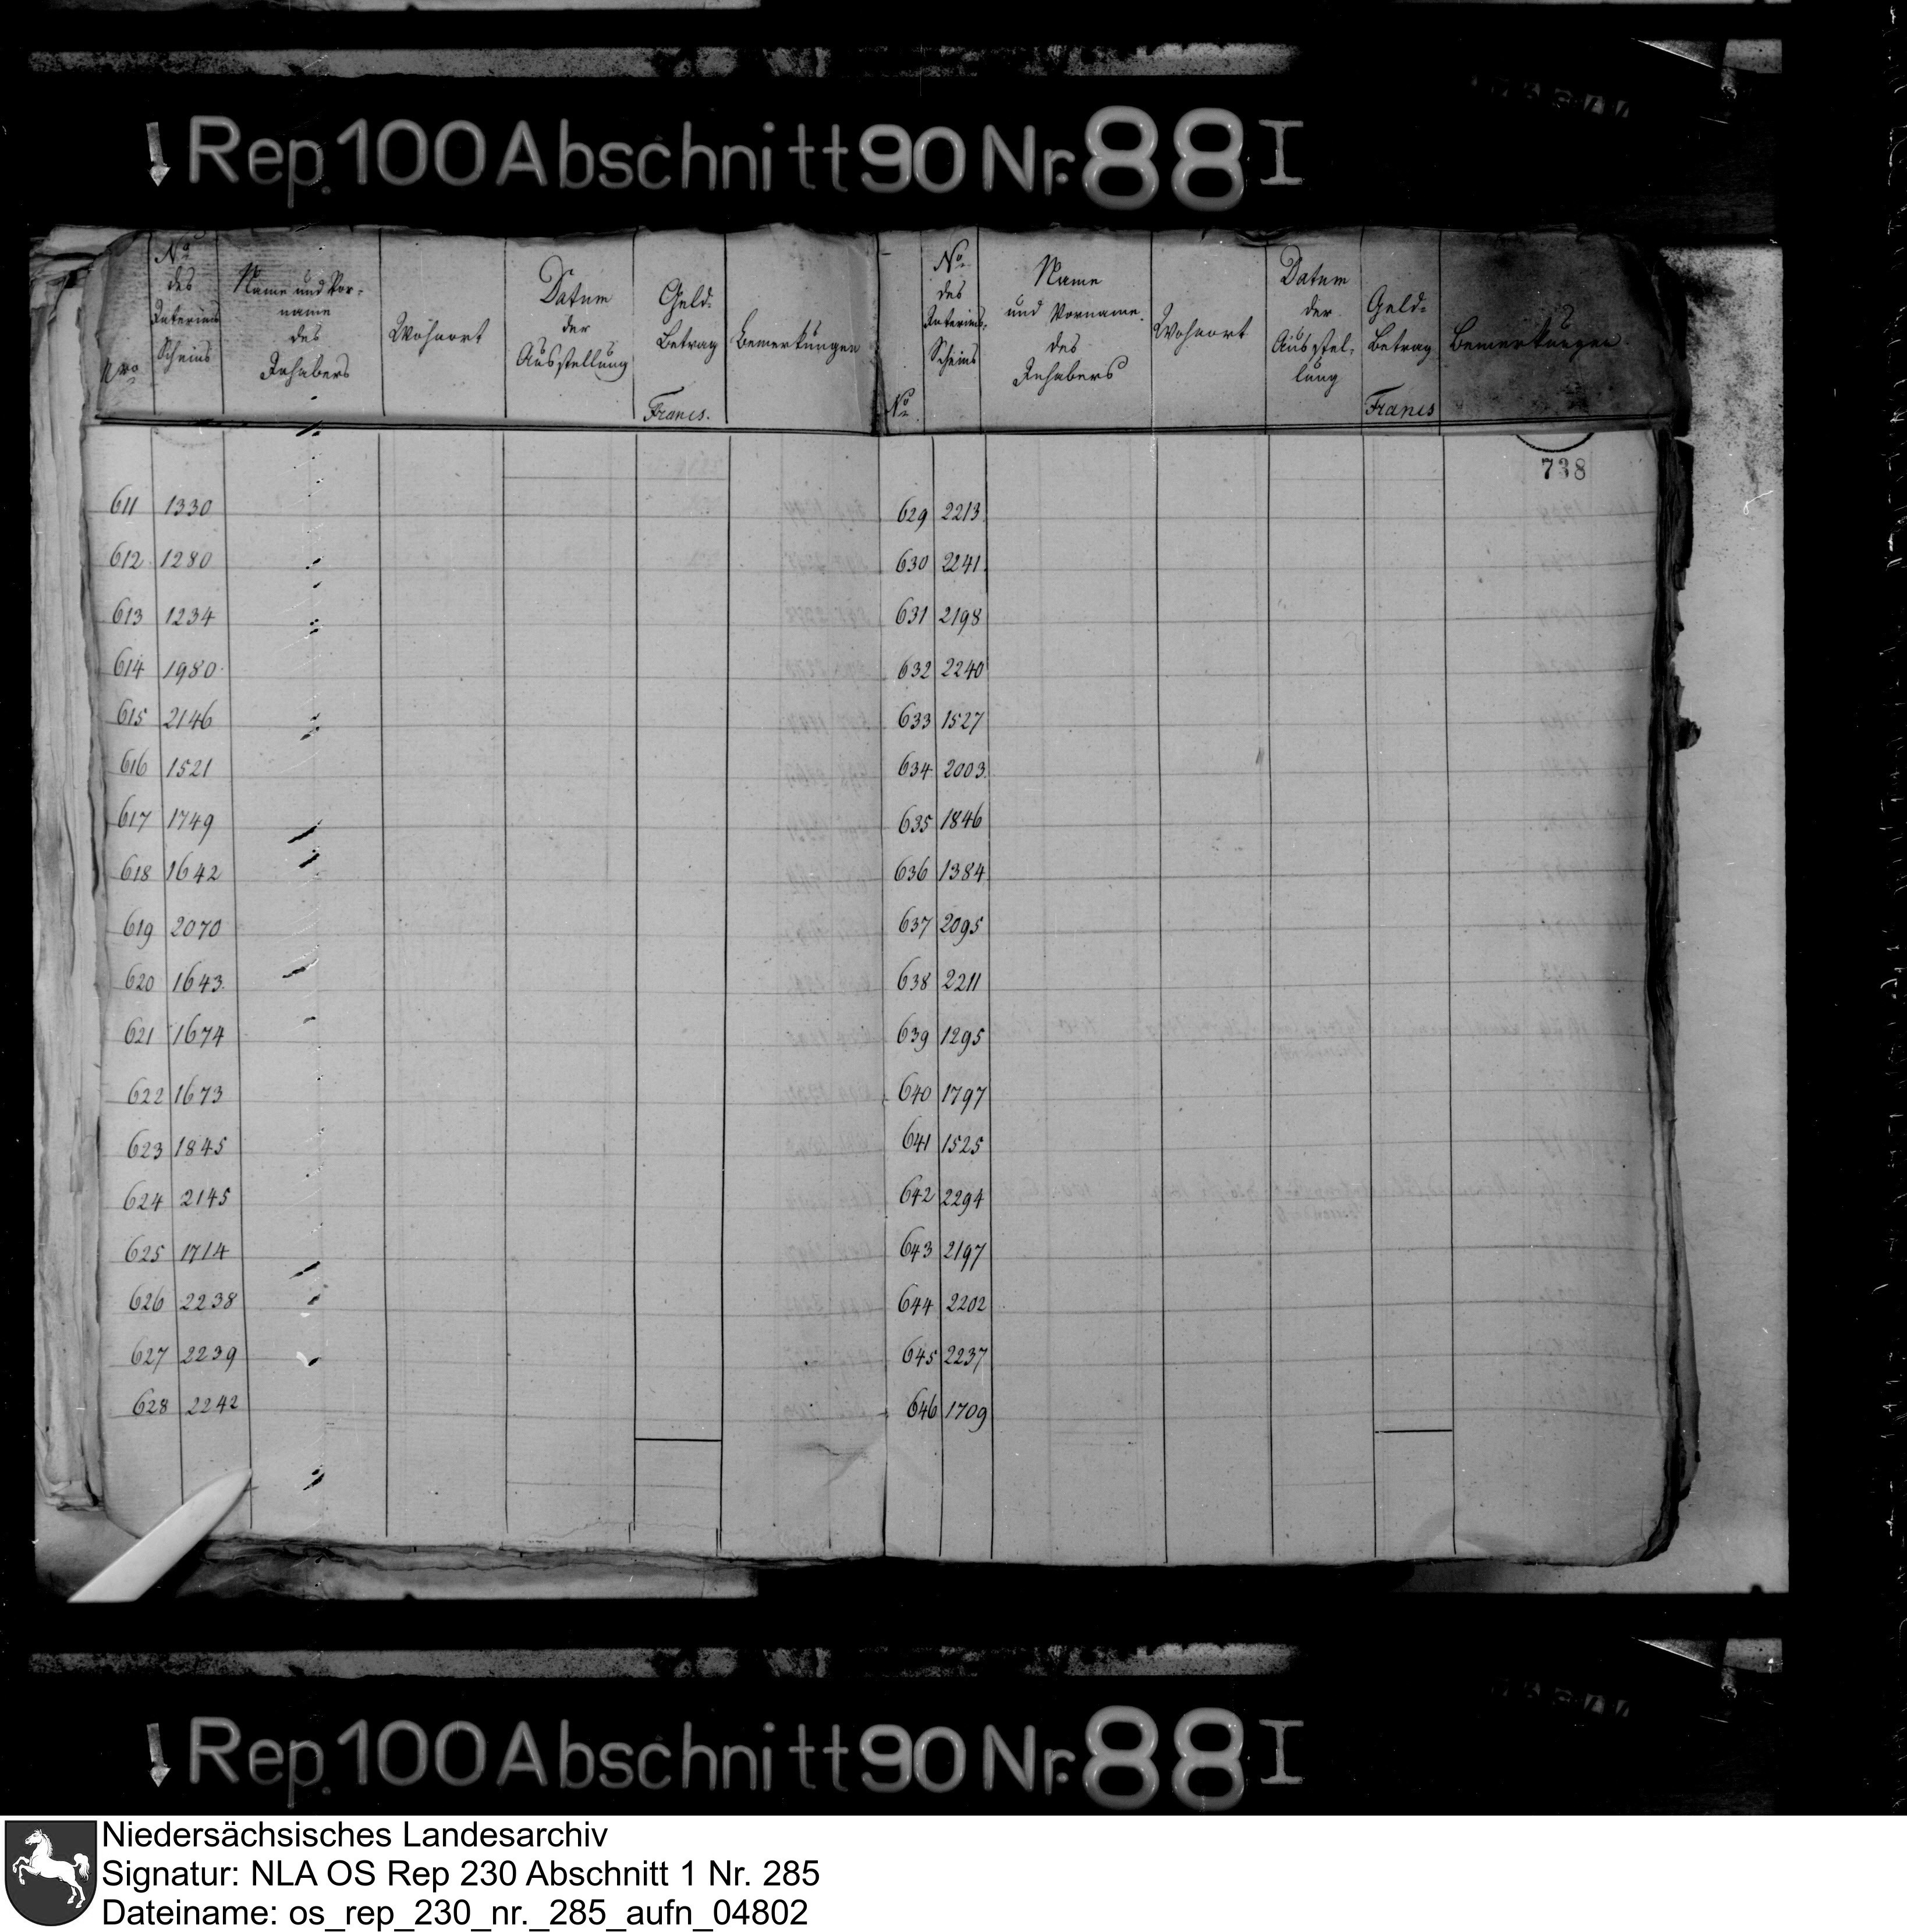 Rep. 100 Abschnitt 90 Nr. 88 I
Nro
No des Interims Scheins
Name und Vor-
name
des
Inhabers
Wohnort
Datum
der
Ausstellung
Geld-
Betrag
Francs.
Bemerkungen
No
No des Interims- Scheins
Name
und Vorname
des
Inhabers
Wohnort
Datum
der
Ausstel-
lung
Geld-
Betrag
Francs
Bemerkungen
738
611 1330
612 1280
613 1234
614 1980
615 2146
616 1521
617 1749
618 1642
619 2070
620 1643
621 1674
622 1673
623 1845
624 2145
625 1714
626 2238
627 2239
628 2242
629 2213
630 2241
631 2198
632 2240
633 1527
634 2003
635 1846
636 1384
637 2095
638 2211
639 1295
640 1797
641 1525
642 2294
643 2197
644 2202
645 2237
646 1709
Rep. 100 Abschnitt 90 Nr. 88 I
Niedersächsisches Landesarchiv
Signatur: NLA OS Rep 230 Abschnitt 1 Nr. 285
Dateiname: os_rep_230_nr._285_aufn_04802